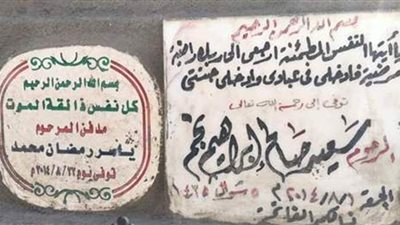 بسم الله الرحمن الرحيم
يا أيتها النفس المطمئنة ارجعي الى ربك راضية
مرضية فادخلى فى عبادى وادخلى جنتى
توفى إلى رحمة الله تعالى
المرحوم سعيد صالح إبراهيم نجم
الجمعة ٢٠١٤/٨/١ م ٥ شوال ١٤٣٥
الفاتحة
بسم الله الرحمن الرحيم
كل نفس ذائقة الموت
مدفن المرحوم
ياسر رمضان محمد
توفى يوم ٢٠١٤/٨/٢٢